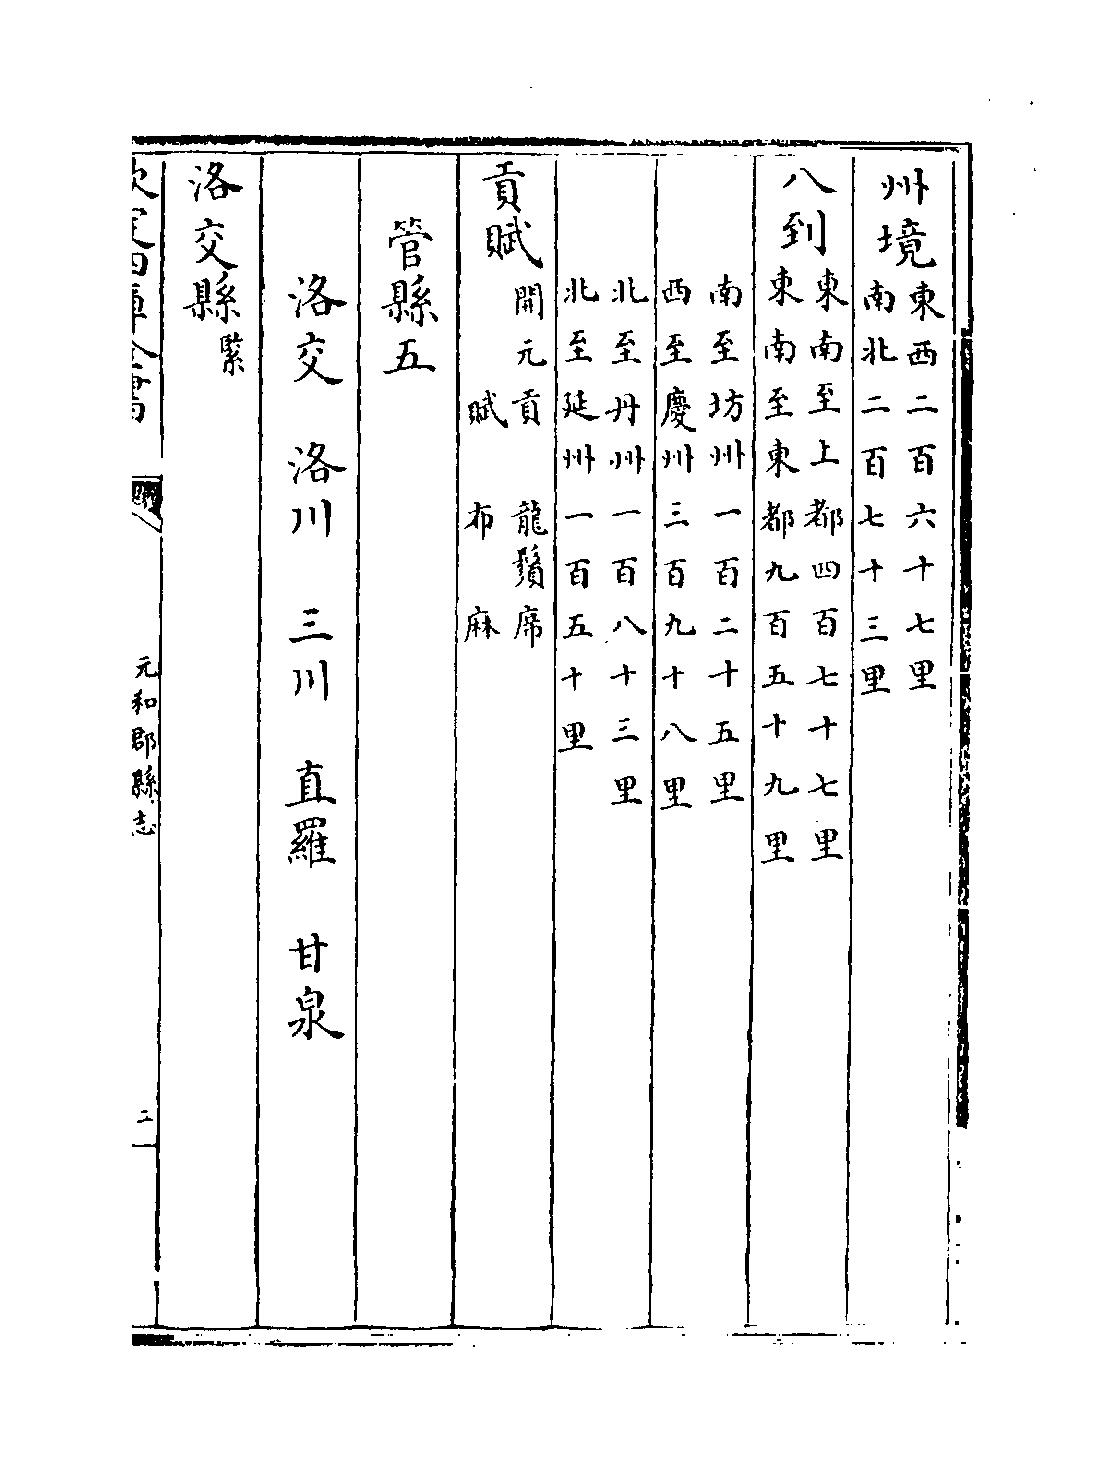 州境東西二百六十七里
南北二百七十三里
八到東南至上都四百七十七里
東南至東都九百五十九里
南至坊州一百二十五里
西至慶州三百九十八里
北至丹州一百八十三里
北至延州一百五十里
貢賦開元貢 龍鬚席
賦 布 麻
管縣五
洛交 洛川 三川 直羅 甘泉
洛交縣緊
欽定四庫全書
元和郡縣志
二